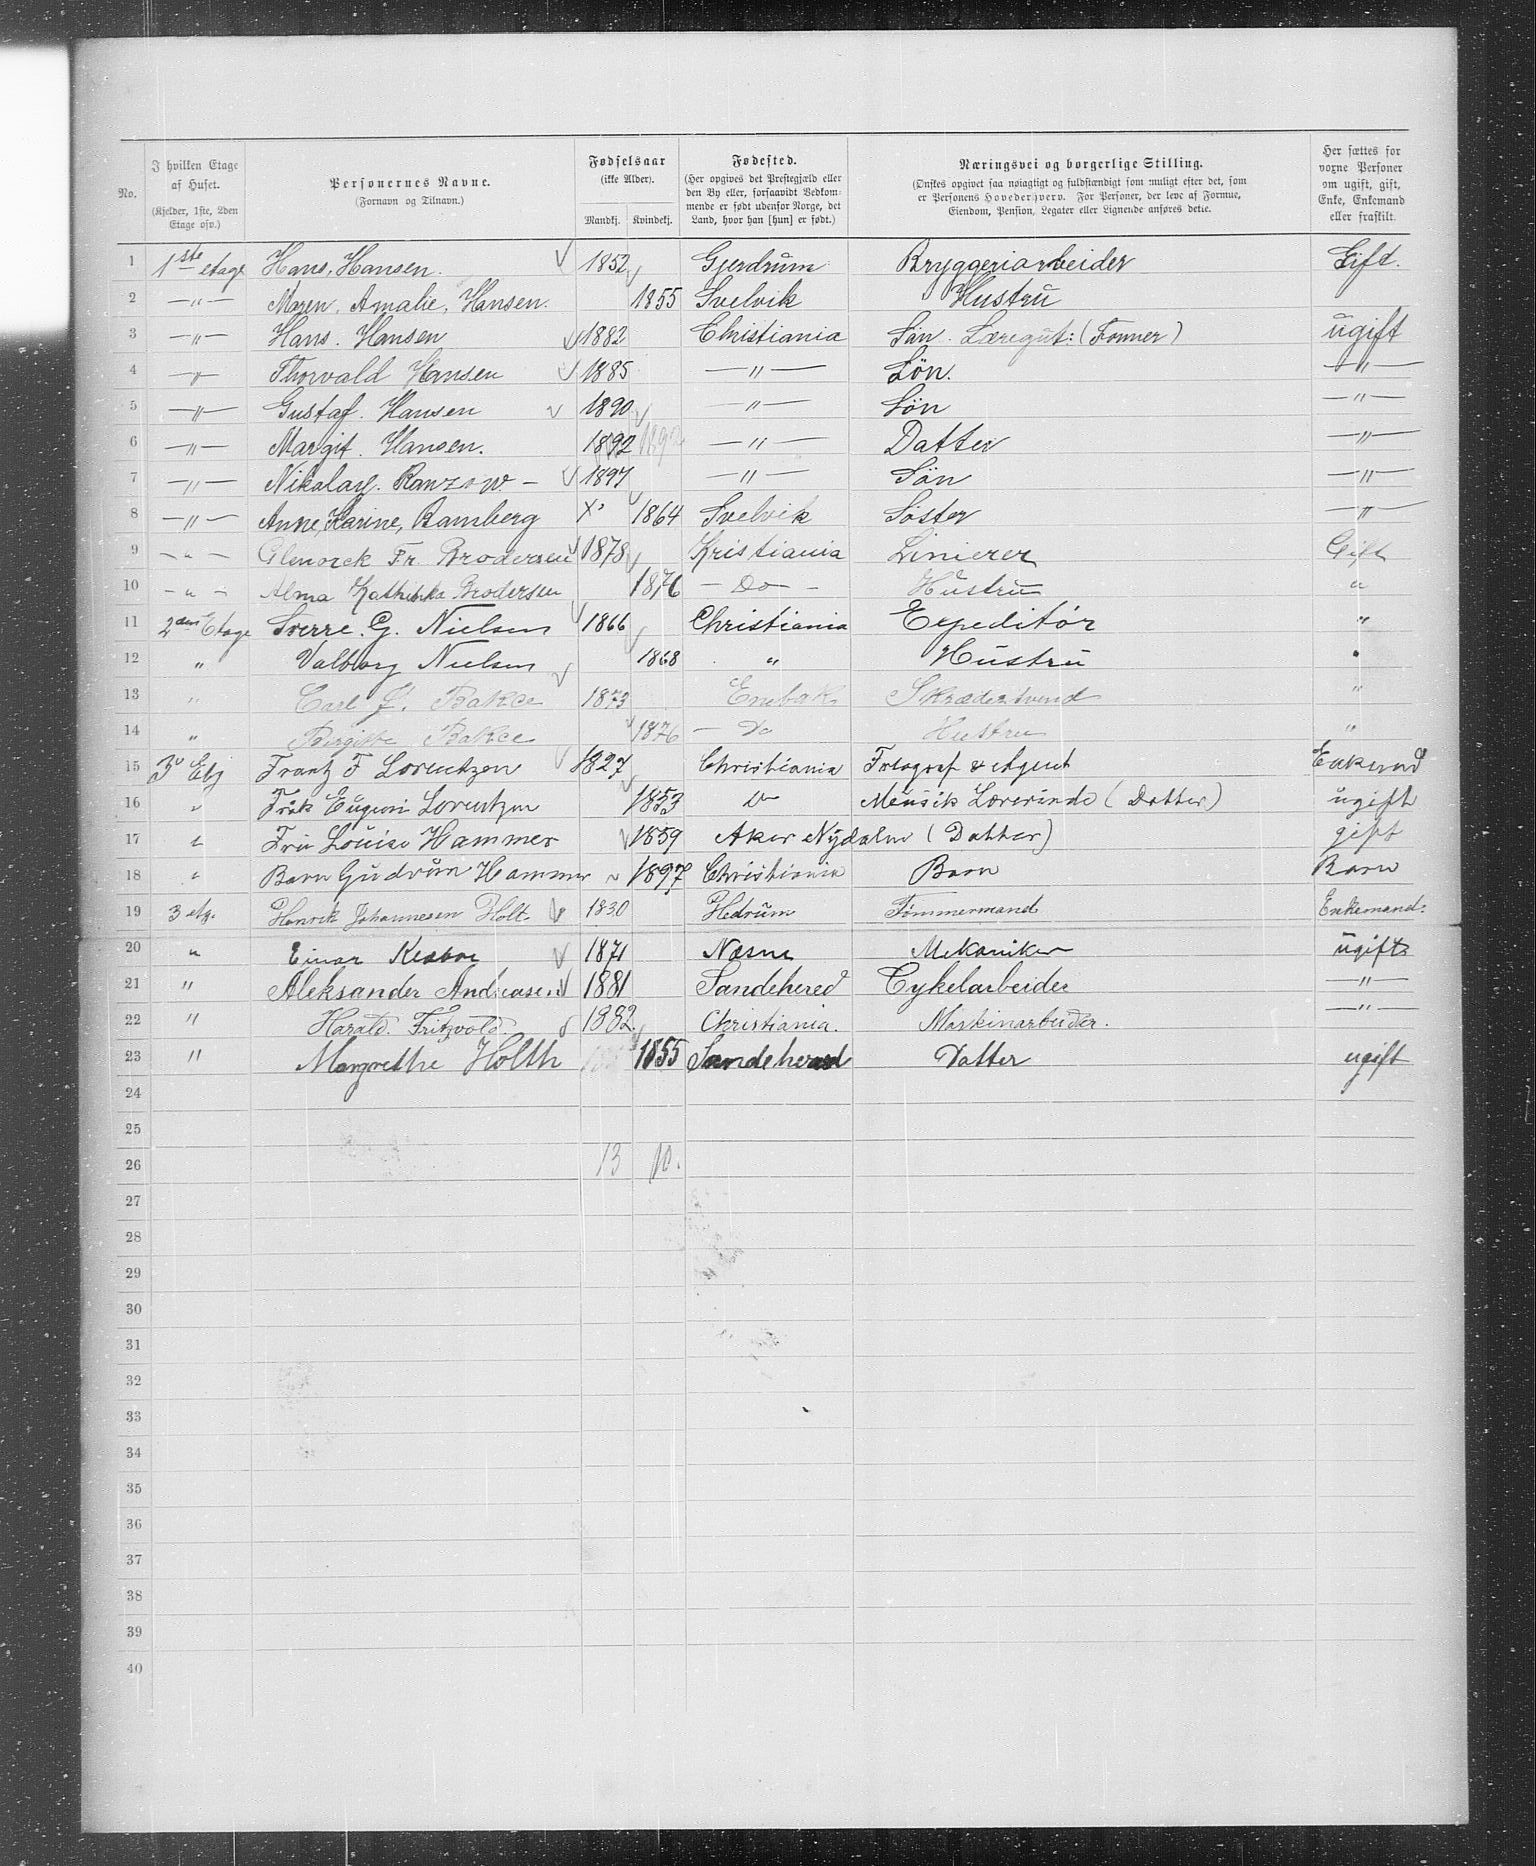 No. | I hvilken Etage af Huset. (Kjelder, 1ste, 2den Etage osv.) | Personernes Navne. (Fornavn og Tilnavn.) | Fødselsaar (ikke Alder). Mandkj. | Kvindekj. | Fødested. (Her opgives det Præstegjæld eller den By eller, forsaavidt Vedkommende er født udenfor Norge, det Land, hvor han [hun] er født.) | Næringsvei og borgerlige Stilling. (Ønskes opgivet saa nøiagtigt og fuldstændigt som muligt efter det, som er Personens Hovederhverv. For Personer, der leve af Formue, Eiendom, Pension, Legater eller Lignende anføres dette.) | Her sættes for voxne Personer om ugift, gift, Enke, Enkemand eller fraskilt.
1 | 1ste etage | Hans, Hansen. | 1852 | | Gjerdrum | Bryggeriarbeider | Gift.
2 | —"— | Maren, Amalie, Hansen. | | 1855 | Svelvik | Hustru
3 | —"— | Hans. Hansen | 1882 | | Christiania | Sön. Læregut: (Former) | ugift
4 | —"— | Thorvald Hansen | 1885 | | —"— | Sön. | —"—
5 | —"— | Gustaf. Hansen | 1890 | | —"— | Sön | —"—
6 | —"— | Margit. Hansen. | 1892 | 1892 | —"— | Datter | —"—
7 | —"— | Nikolay. Ranzow — | 1897 | | —"— | Sön | —"—
8 | —"— | Anne, Karine, Bamberg | X | 1864 | Svelvik | Söster | —"—
9 | —"— | Fr. Brodersen | 1878 | | Kristiania | Linierer | Gift
10 | —"— | Alma Kathinka Brodersen | | 1876 | — Do — | Hustru | "
11 | 2den Etage | Sverre. G. Nielsen | 1866 | | Christiania | Expeditör | "
12 | " | Valborg Nielsen | | 1868 | " | Hustru | "
13 | " | Carl Bakce | 1873 | | Enebak | Skrædersvend | "
14 | " | Birgitte Bakce | | 1876 | — Do | Hustru | "
15 | 3 Etg | Frantz F Lorentzen | 1827 | | Christiania | Fotograf & Agent | Enkemd
16 | " | Frøk Eugeni Lorentzen | | 1853 | Do | Musik Lærerinde (Datter) | ugift
17 | " | Fru Louise Hammer | | 1859 | Aker Nydalen (Datter) | gift
18 | " | Barn Gudrun Hammer | | 1897 | Christiania | Barn | Barn
19 | 3 etg. | Henrik Johannesen Holt | 1830 | | Hedrum | Tømmermand | Enkemand.
20 | " | Einar | 1871 | | Næsne | Mekaniker | ugift
21 | " | Aleksander Andreasen | 1881 | | Sandehered | Cykelarbeider | —"—
22 | " | Harald. Fritzvold. | 1882 | | Christiania. | Maskinarbeider. | —"—
23 | " | Margrethe Holth | | 1855 | Sandeherad | Datter | ugift
24
25
26 | | | 13 | 10.
27
28
29
30
31
32
33
34
35
36
37
38
39
40